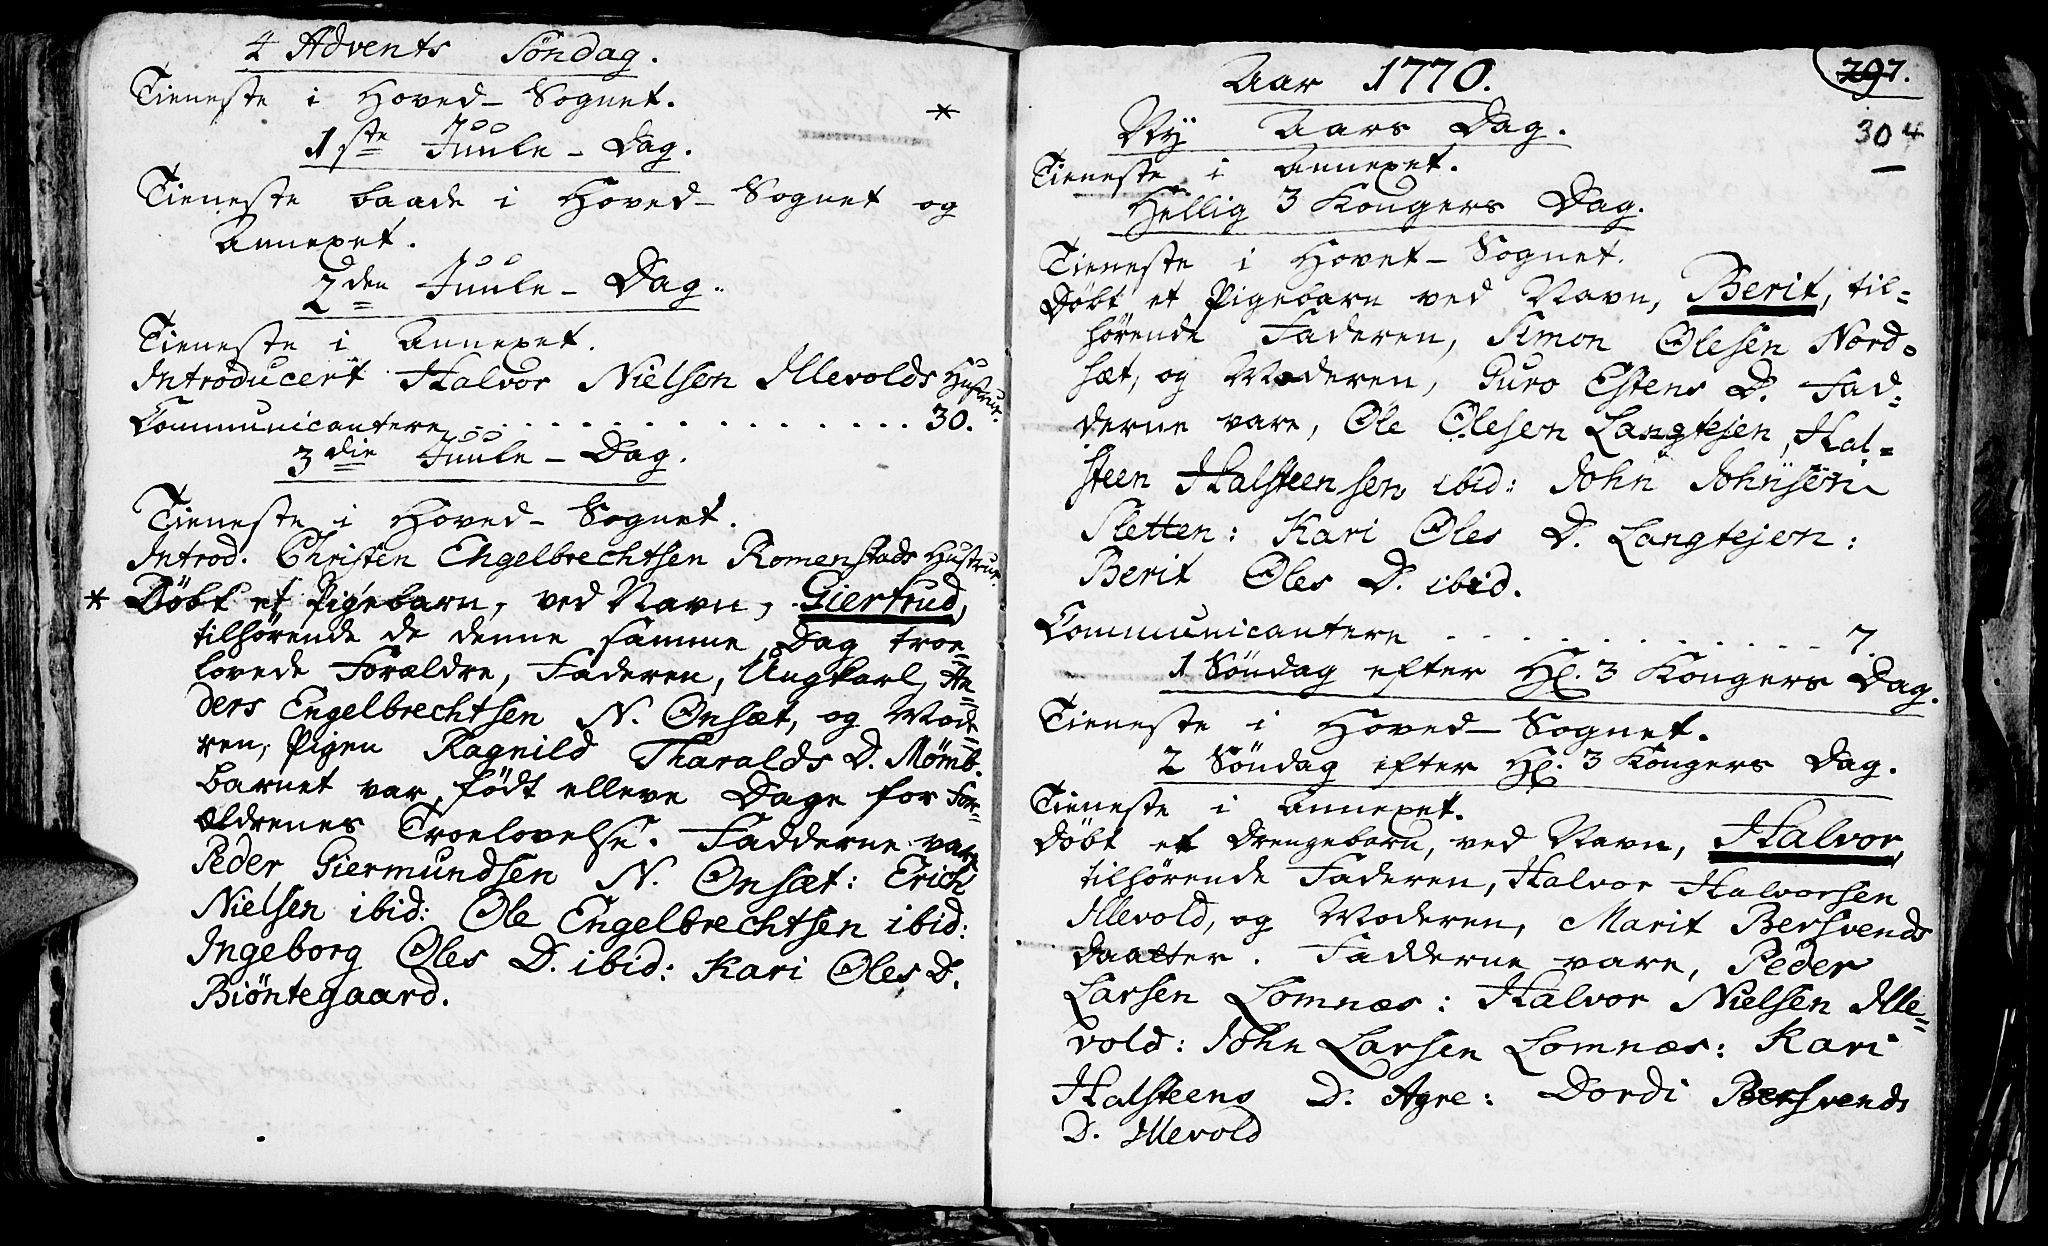 4 Advents Söndag.
Tieneste i Hoved-Sognet.
*
1ste Juule-Dag.
Tieneste baade i Hoved-Sognet og
Annexet.
2den Juule-Dag.
Tieneste i Annexet.
Introducert Halvor Nielsen Illevolds Hustrue.
Communicantere . . . . . . . . . . . . . . 30.
3die Juule-Dag.
Tieneste i Hoved-Sognet.
Introd. Christen Engelbrechtsen Romenstads Hustrue.
* Döbt et Pigebarn, ved Navn, Giertrud,
tilhörende de denne samme Dag troe=
lovede Forældre, Faderen, Ungkarl, An=
ders Engelbrechtsen N. Onsæt, og Mode=
ren, Pigen Ragnild Tharalds D. Mømb.
Barnet var födt elleve Dage for For=
ældrenes Troelovelse. Fadderne vare
Peder Giermundsen N. Onsæt: Erich
Nielsen ibid: Ole Engelbrechtsen ibid:
Ingeborg Oles D. ibid: Kari Oles D.
Biöntegaard.
297.
304
Aar 1770.
Ny Aars Dag.
Tieneste i Annexet.
Hellig 3 Kongers Dag.
Tieneste i Hovet-Sognet.
Döbt et Pigebarn ved Navn, Berit, til=
hörende Faderen, Simon Olesen Nord=
sæt, og Moderen, Guro Estens D. Fad=
derne vare, Ole Olesen Langtejen, Hal=
steen Halsteensen ibid: John Johnsen
Sletten: Kari Oles D. Langtejen:
Berit Oles D. ibid.
Communicantere . . . . . . . . . . . 7.
1 Söndag efter Hl. 3 Kongers Dag.
Tieneste i Hoved-Sognet.
2 Söndag efter Hl. 3 Kongers Dag.
Tieneste i Annexet.
Döbt et Drengebarn, ved Navn, Halvor,
tilhörende Faderen, Halvor Halvorsen
Illevold, og Moderen, Marit Bersvends
Daatter. Fadderne vare, Peder
Larsen Lomnæs: Halvor Nielsen Ille=
vold: John Larsen Lomnæs: Kari
Halsteens D. Agre: Dordi Bersvends
D. Illevold